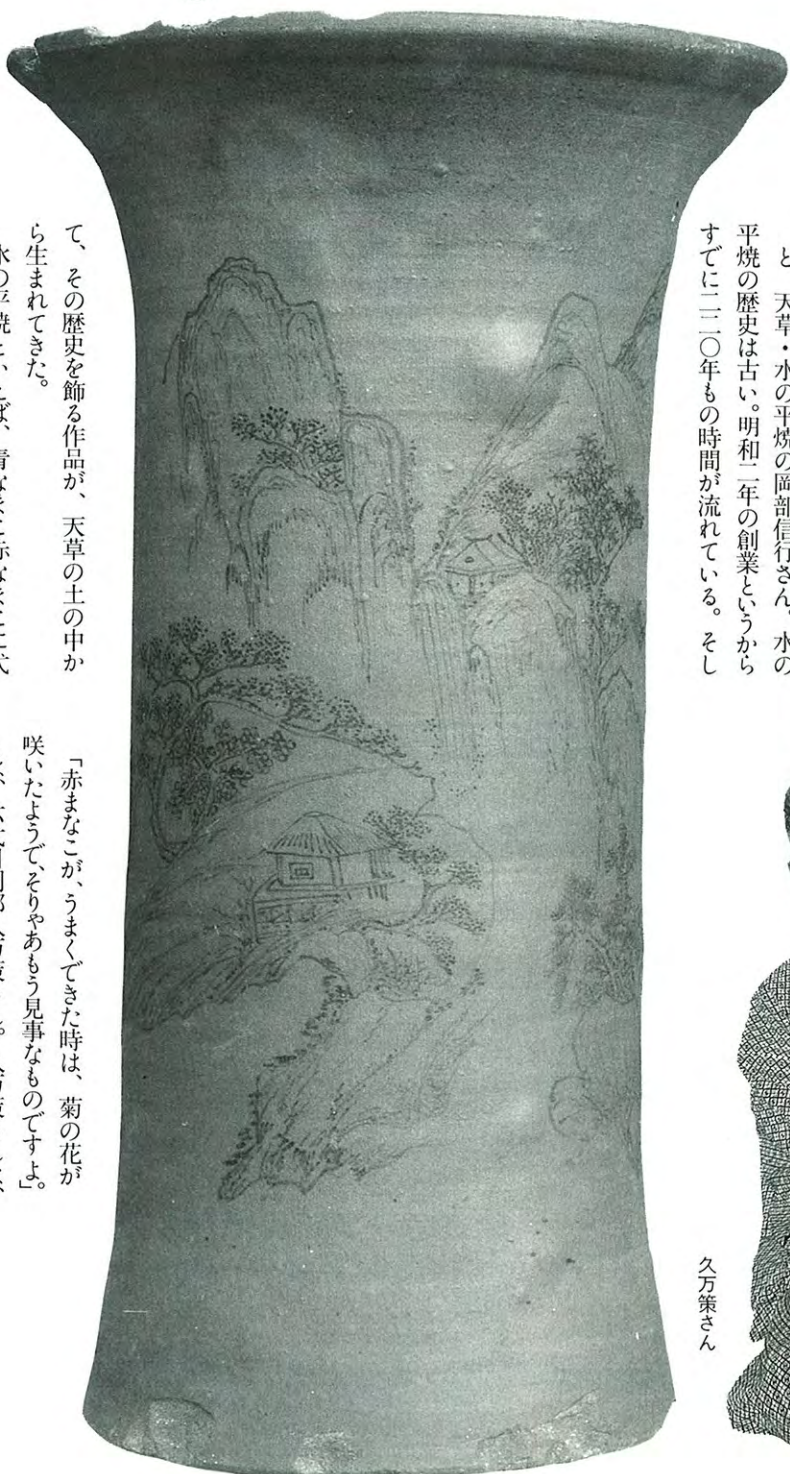 と、天草・水の平焼の岡部信行さん。水の
平焼の歴史は古い。明和二年の創業というから
すでに二二〇年もの時間が流れている。そし
て、その歴史を飾る作品が、天草の土の中か
ら生まれてきた。
「赤まなこが、うまくできた時は、菊の花が
咲いたようで、そりゃあもう見事なものですよ。」
久万策さん